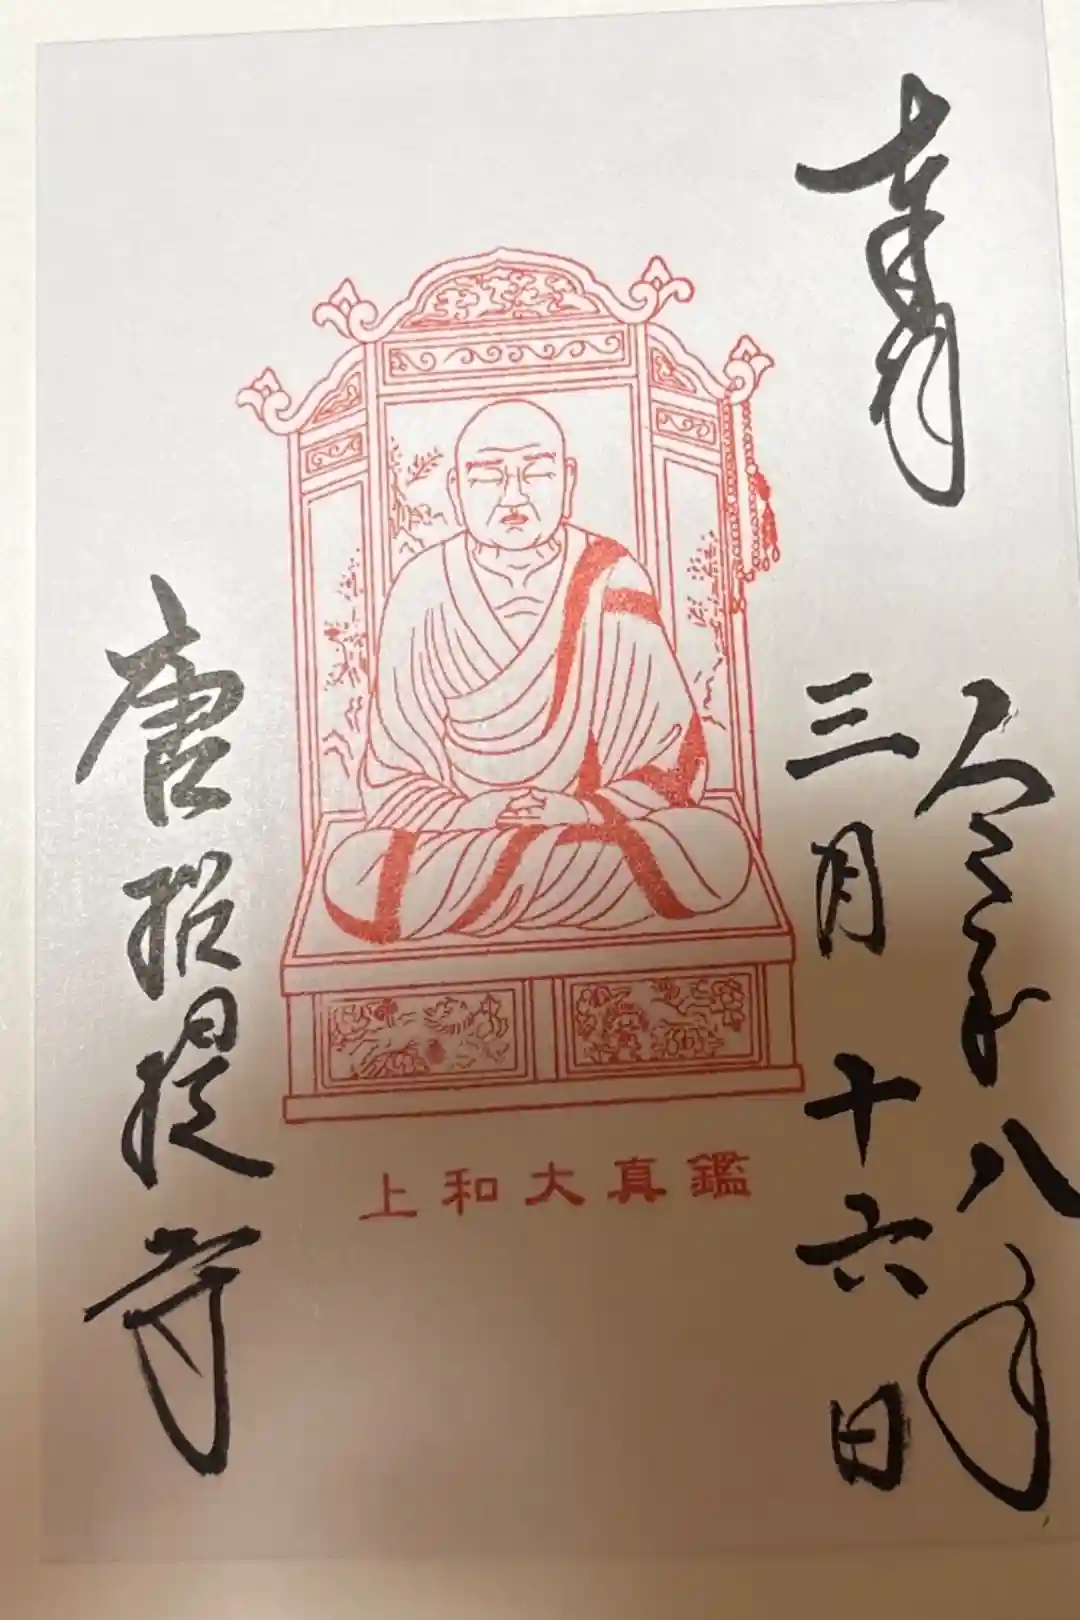 奉拝
令和八年
三月十六日
上和大真鑑
唐招提寺